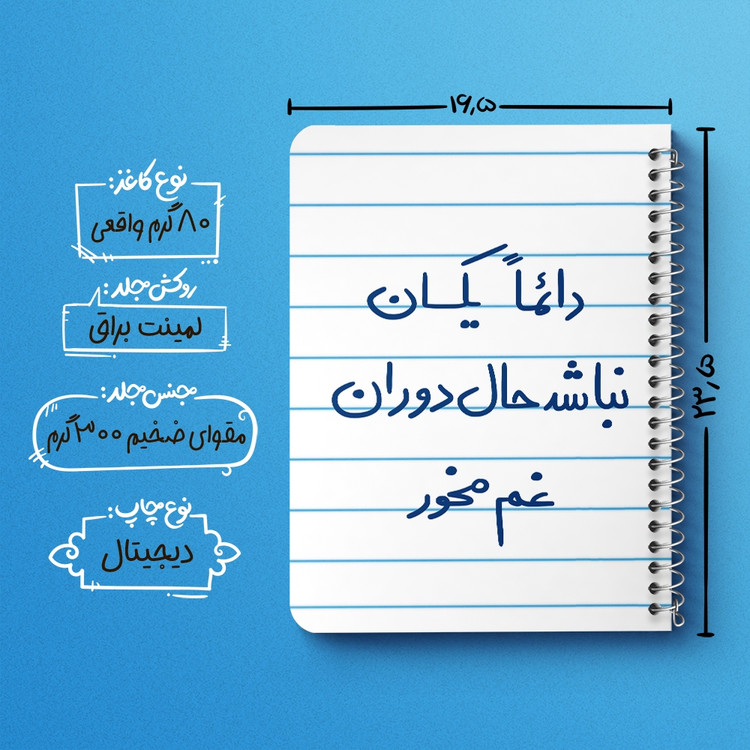 ۱۹٫۵
دائماً یکسان
نباشد حال دوران
غم مخور
۲۳٫۵
نوع کاغذ:
۸۰ گرم واقعی
روکش مجلد:
لمینت براق
جنس مجلد:
مقوای ضخیم ۳۰۰ گرم
نوع چاپ:
دیجیتال